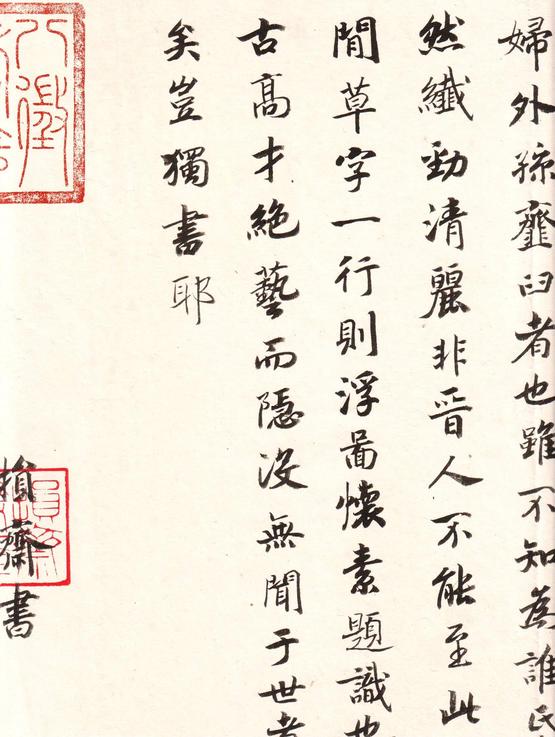 婦外孫韲臼者也雖不知為誰氏
然纖勁清麗非晉人不能至此
閒草字一行則浮啚懷素題識也
古高才絕藝而隱沒無聞于世者
矣豈獨書耶
損齋書